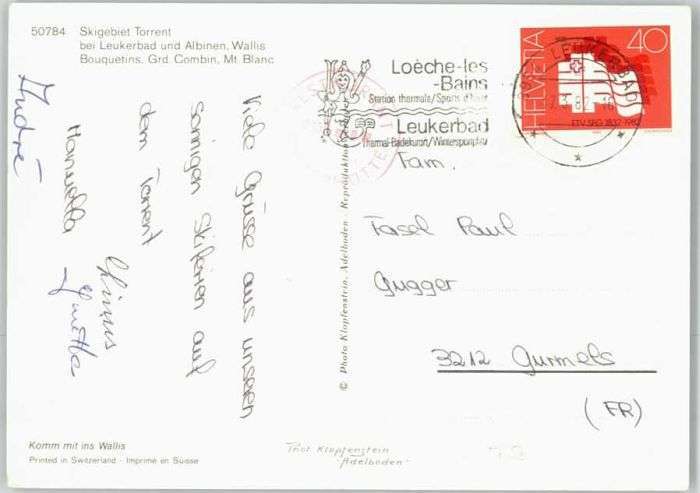 50784 Skigebiet Torrent
bei Leukerbad und Albinen, Wallis
Bouquetins, Grd Combin, Mt Blanc
Viele Grüsse aus unseren
sonnigen Skiferien auf
dem Torrent
Manuella
André
Komm mit ins Wallis
Printed in Switzerland - Imprimé en Suisse
© Photo Klopfenstein, Adelboden - Reproduktion
Loèche-les
-Bains
Station thermale/Sports d'hiver
Leukerbad
Thermal-Badekurort/Wintersportplatz
LEUKERBAD
HELVETIA
40
ETV SFG 1832-1982
Fam.
Fasel Paul
Gugger
3212 Gurmels
(FR)
Phot Klopfenstein
"Adelboden"